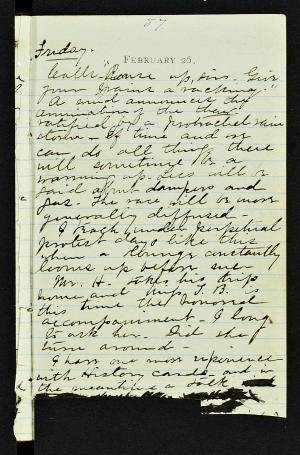 57
Friday.
FEBRUARY 26,
calls "Rouse up, sirs. Give
your brains a racking."
A wind announces the
of the
ratified by a protracted rain
storm - If time and we
can do all things there
will sometime be a
warming up. Less will be
said about dampers and
gas. The race will be more
generally diffused -
I teach under perpetual
protest days like this
when a lounge constantly
looms up before me
Mr. H. takes his trip
home and Miss J. B. is
this time the honored
accompaniment - I long
to ask her. Did she
turn around -
I have one more experience
with History cards and in
the meantime a talk